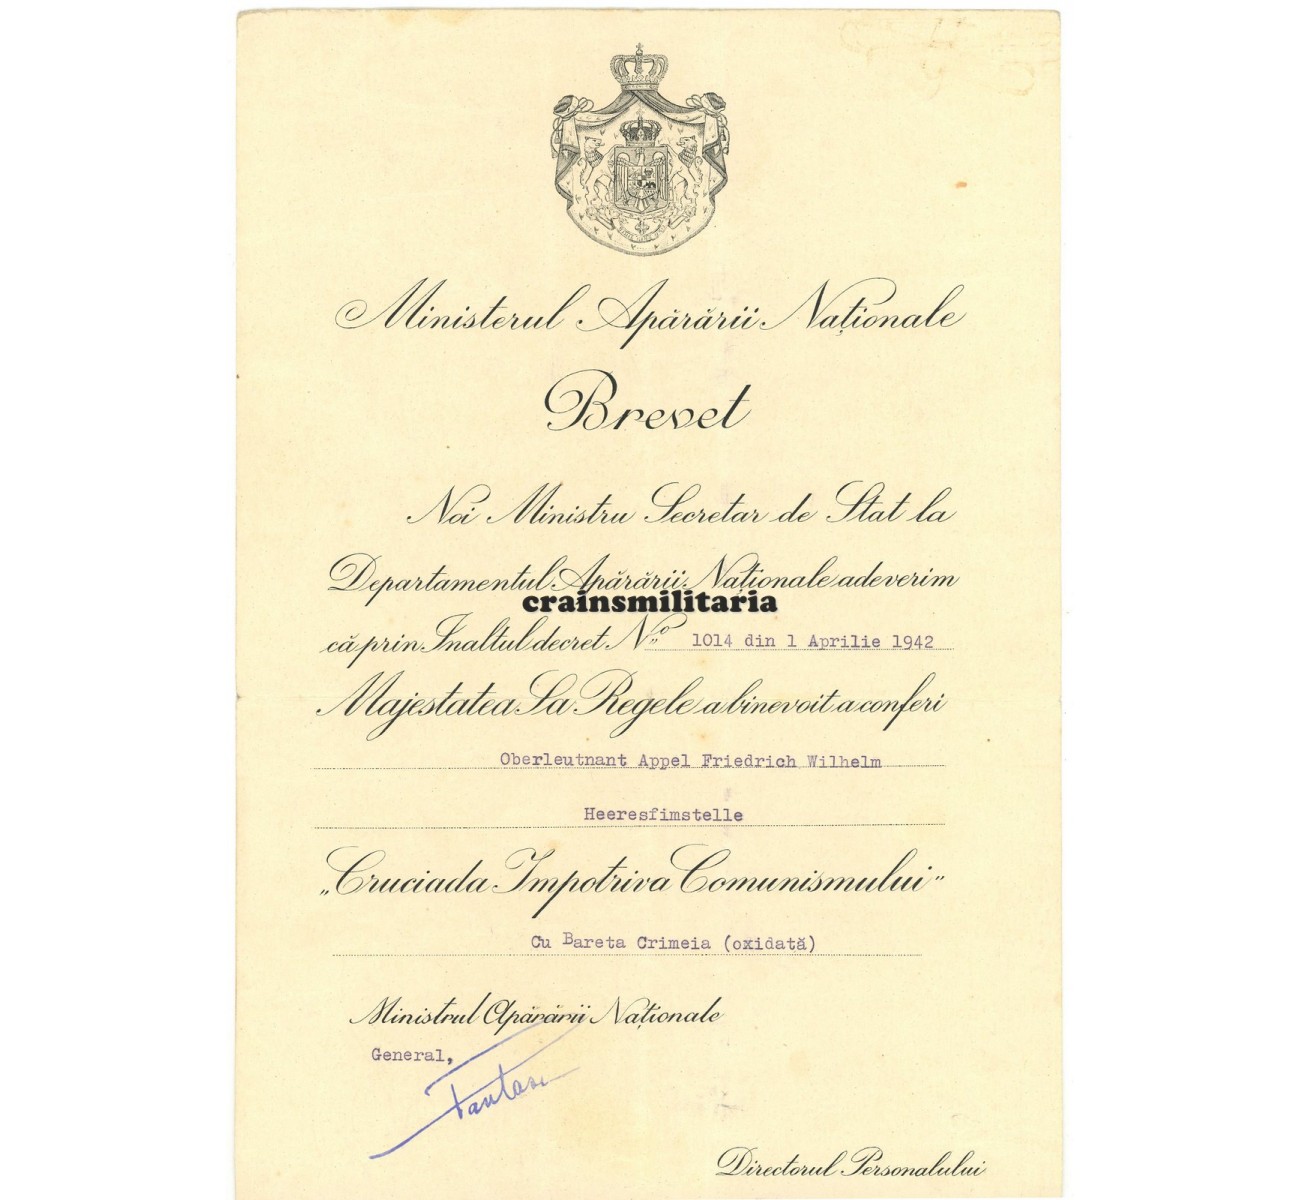 Ministerul Apărării Naționale
Brevet
Noi Ministru Secretar de Stat la
Departamentul Apărării Naționale adeverim
crainsmilitaria
că prin Inaltul decret No 1014 din 1 Aprilie 1942
Majestatea Sa Regele a binevoit a conferi
Oberleutnant Appel Friedrich Wilhelm
Heeresfimstelle
„Cruciada Impotriva Comunismului”
Cu Bareta Crimeia (oxidată)
Ministrul Apărării Naționale
General,
Directorul Personalului